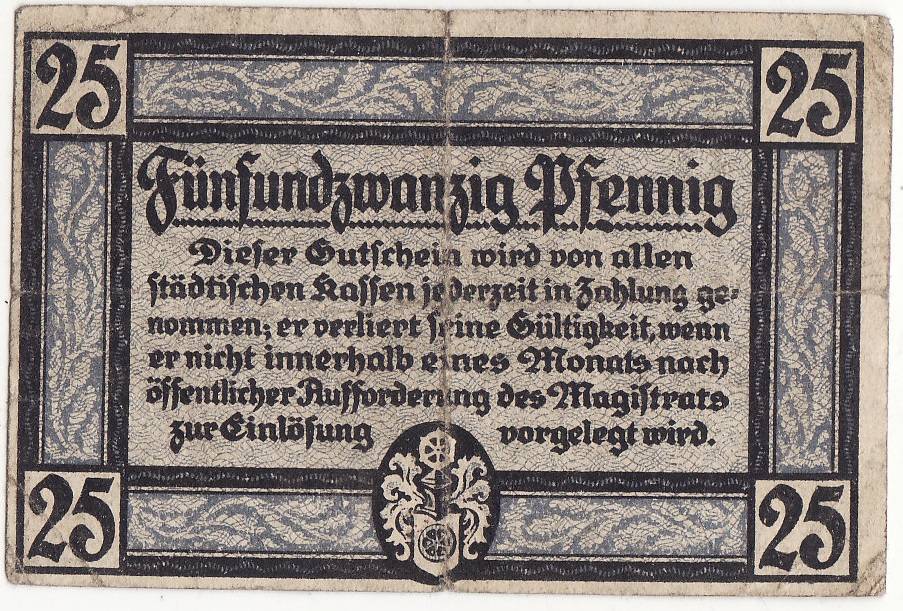 25 25
Fünfundzwanzig Pfennig
Dieser Gutschein wird von allen
städtischen Kassen jederzeit in Zahlung ge=
nommen; er verliert seine Gültigkeit, wenn
er nicht innerhalb eines Monats nach
öffentlicher Aufforderung des Magistrats
zur Einlösung vorgelegt wird.
25 25